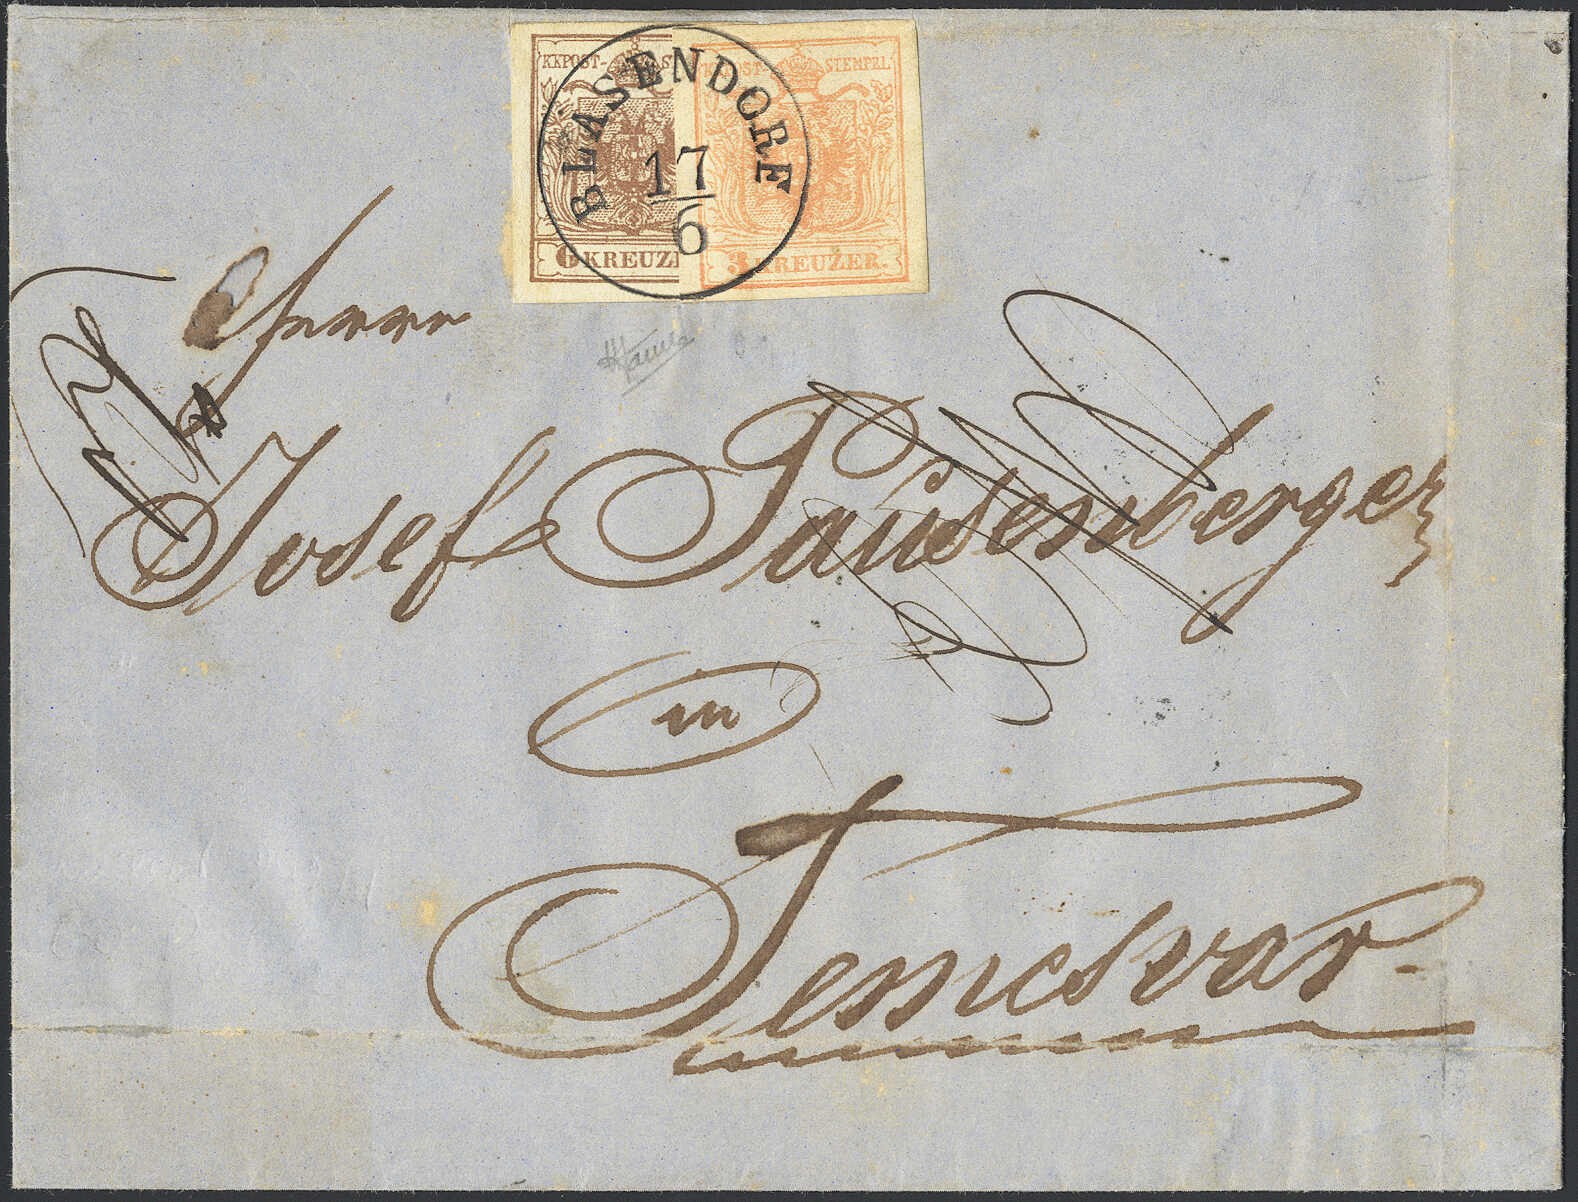 KKPOST-ST
POST-STEMPEL
BLASENDORF
17
6
6 KREUZ
3 KREUZER.
Herrn
Josef Pausenberger
in
Temesvar.